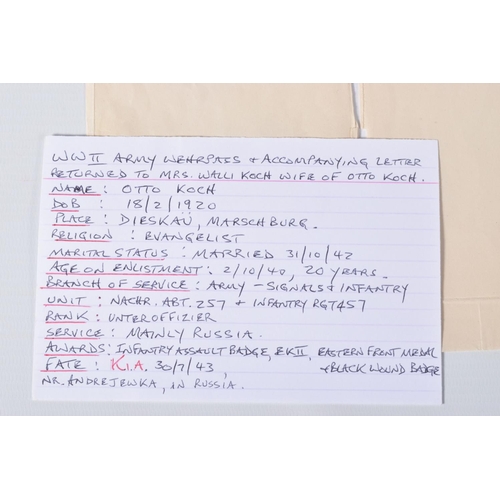 WWII ARMY WEHRPASS + ACCOMPANYING LETTER
RETURNED TO MRS. WALLI KOCH WIFE OF OTTO KOCH.
NAME: OTTO KOCH
DOB : 18/2/1920
PLACE: DIESKAÜ, MARSCHBURG.
RELIGION : EVANGELIST
MARITAL STATUS : MARRIED 31/10/42
AGE ON ENLISTMENT: 2/10/40, 20 YEARS.
BRANCH OF SERVICE: ARMY - SIGNALS + INFANTRY
UNIT : NACHR. ABT. 257 + INFANTRY RGT 457
RANK: UNTEROFFIZIER
SERVICE: MAINLY RUSSIA.
AWARDS: INFANTRY ASSAULT BADGE, EKII, EASTERN FRONT MEDAL
+ BLACK WOUND BADGE
FATE : K.I.A. 30/7/43,
NR. ANDREJEWKA, IN RUSSIA.